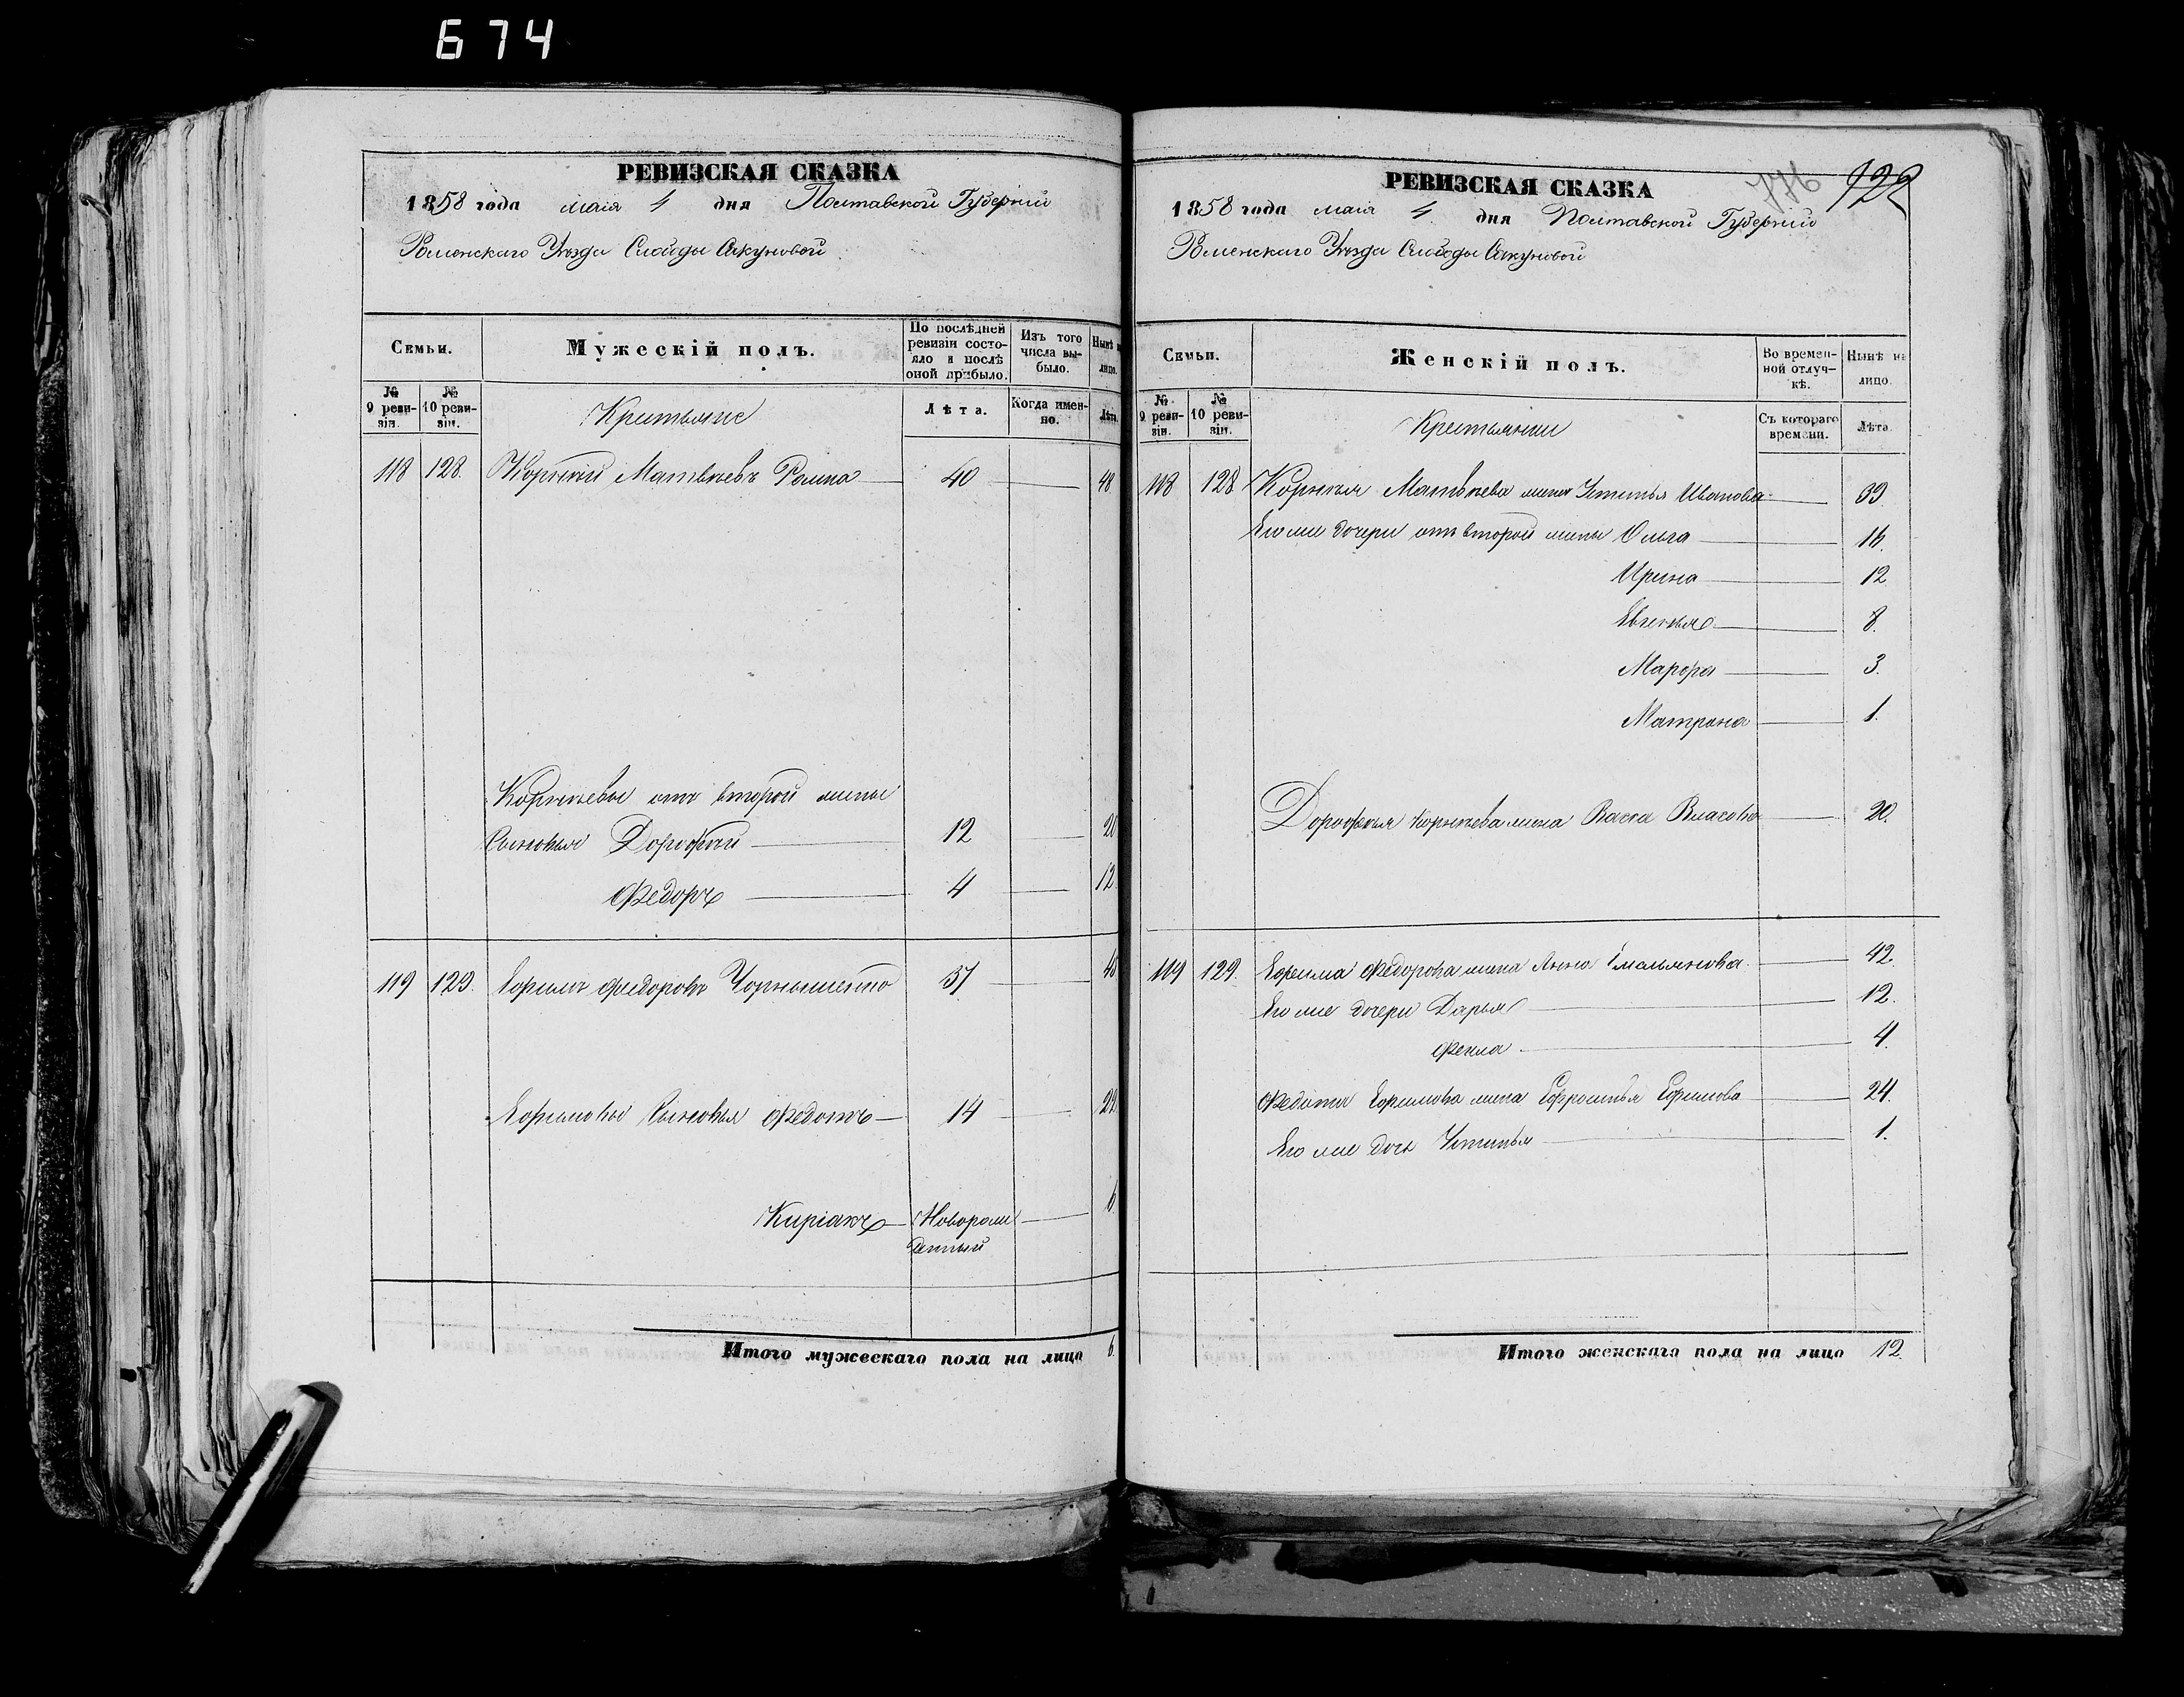 674
РЕВИЗСКАЯ СКАЗКА
1858 года маія 4 дня Полтавской Губерніи
Роменскаго Уѣзда Слободы Окуновой
Семьи.
Мужескій полъ.
По послѣдней ревизіи состояло и послѣ оной прибыло.
Изъ того числа выбыло.
Нынѣ на лицо.
№ 9 ревизіи.
№ 10 ревизіи.
Крестьяне
Лѣта.
Когда именно.
Лѣта.
118 128. Корнѣй Матвѣевъ 40 48
Корнѣевы отъ второй жены
сыновья Дорофѣй 12 20
Федоръ 4 12
119 129. Ефимъ Федоровъ 37 45
Ефимовы сыновья Федотъ 14 22
Киріакъ Новорож 6
денный
Итого мужескаго пола на лицо 6.
РЕВИЗСКАЯ СКАЗКА
776 122
1858 года маія 4 дня Полтавской Губерніи
Роменскаго Уѣзда Слободы Окуновой
Семьи.
Женскій полъ.
Во временной отлучкѣ.
Нынѣ на лицо.
№ 9 ревизіи.
№ 10 ревизіи.
Крестьянки
Съ котораго времени.
Лѣта.
118 128 Корнѣя Матвѣева жена Устинья Иванова 39.
Его же дочери отъ второй жены Ольга 16.
Ирина 12
Евгенья 8.
Марфа 3.
Матрона 1.
Дорофѣя Корнѣева жена Васса Власова 20.
119 129. Ефима Федорова жена Анна Емельянова 42.
Его же дочери Дарья 12.
Фекла 4.
Федота Ефимова жена Ефросинья Ефимова 24.
Его же дочь Устинья 1.
Итого женскаго пола на лицо 12.